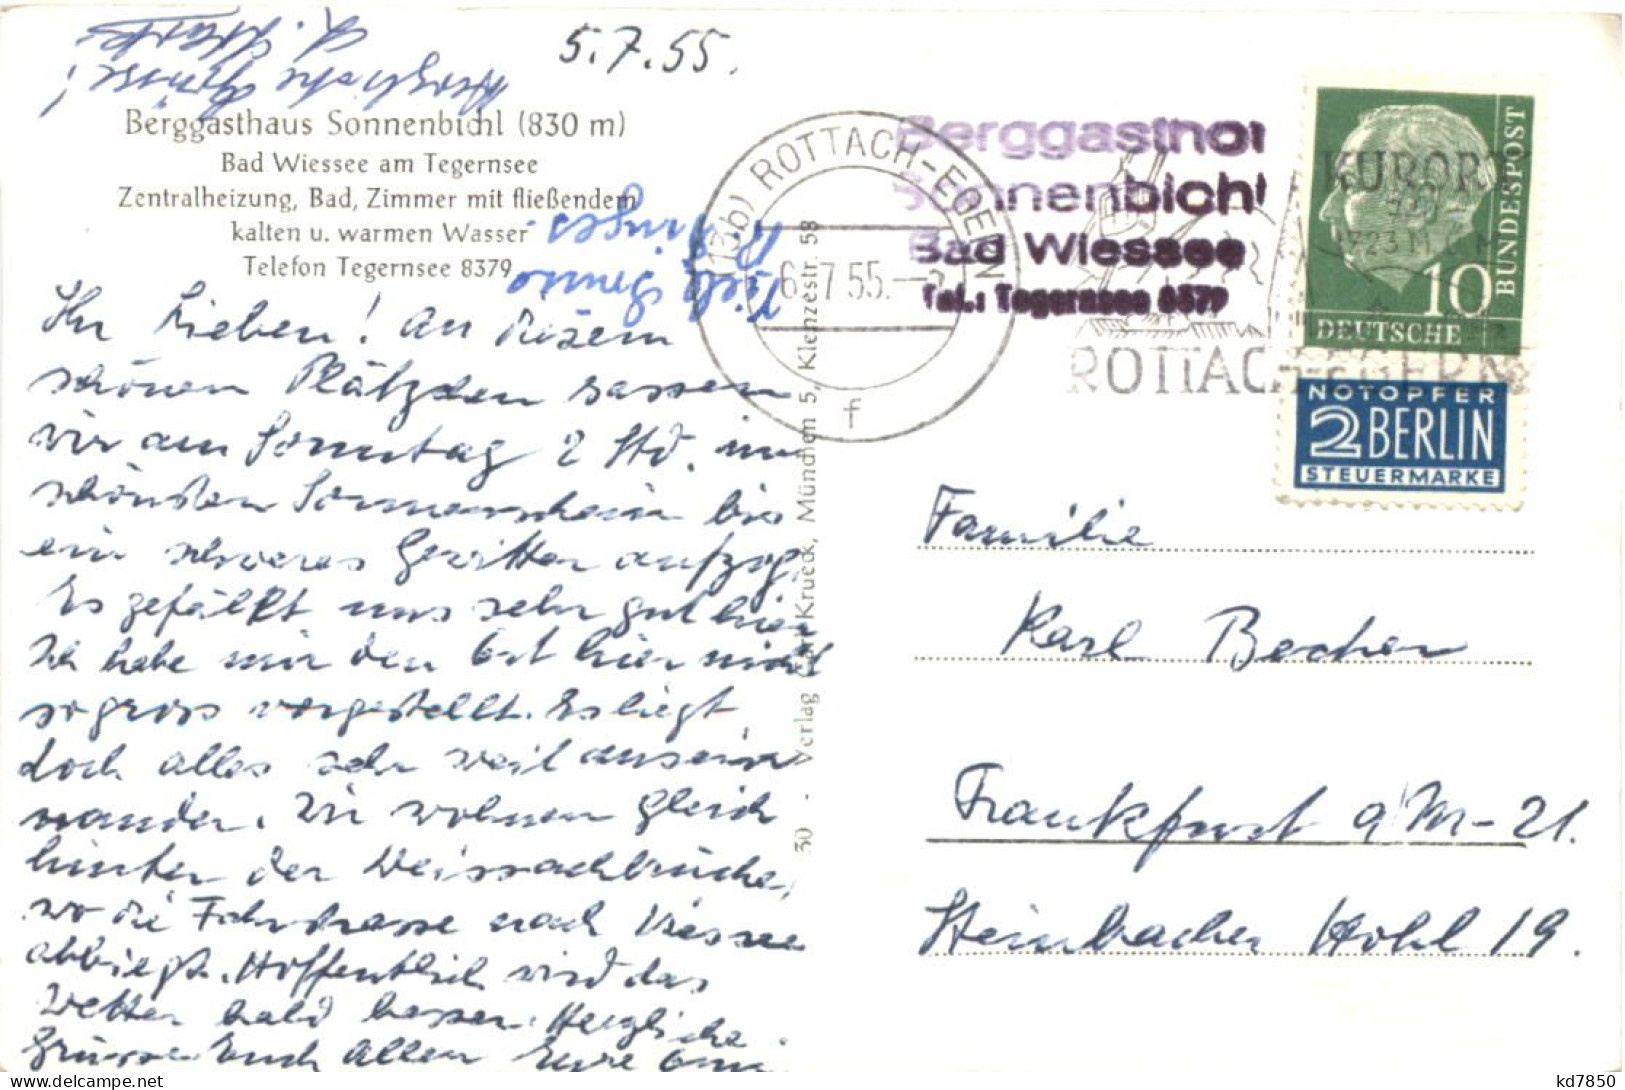 5.7.55.
Herzliche Grüsse!
Berggasthaus Sonnenbichl (830 m)
Bad Wiessee am Tegernsee
Zentralheizung, Bad, Zimmer mit fließendem
kalten u. warmen Wasser
Telefon Tegernsee 8379
Ihr Lieben! An diesem
schönen Plätzchen sassen
wir am Sonntag 2 Std. im
schönsten Sonnenschein bis
ein schweres Gewitter aufzog.
Es gefällt uns sehr gut hier
Ich habe mir den Ort hier nicht
so gross vorgestellt. Es liegt
doch alles sehr weit ausein
nander. Wir wohnen gleich
hinter der Weissachbrücke,
wo die Fahrstrasse nach Wiessee
abbiegt. Hoffentlich wird das
Wetter bald besser. Herzliche
Grüsse Euch Allen Eure Omi
Viele Grüsse
30 · Verlag Krueck, München 5, Klenzestr. 58
(13b) ROTTACH-EGERN
6.7.55.
f
Berggasthof
Sonnenbichl
Bad Wiessee
Tel.: Tegernsee 8379
KURORT
ROTTACH-EGERN
DEUTSCHE
BUNDESPOST
10
NOTOPFER
2 BERLIN
STEUERMARKE
Familie
Karl Becher
Frankfurt a/M-21.
Steinbacher Hohl 19.
kd7850